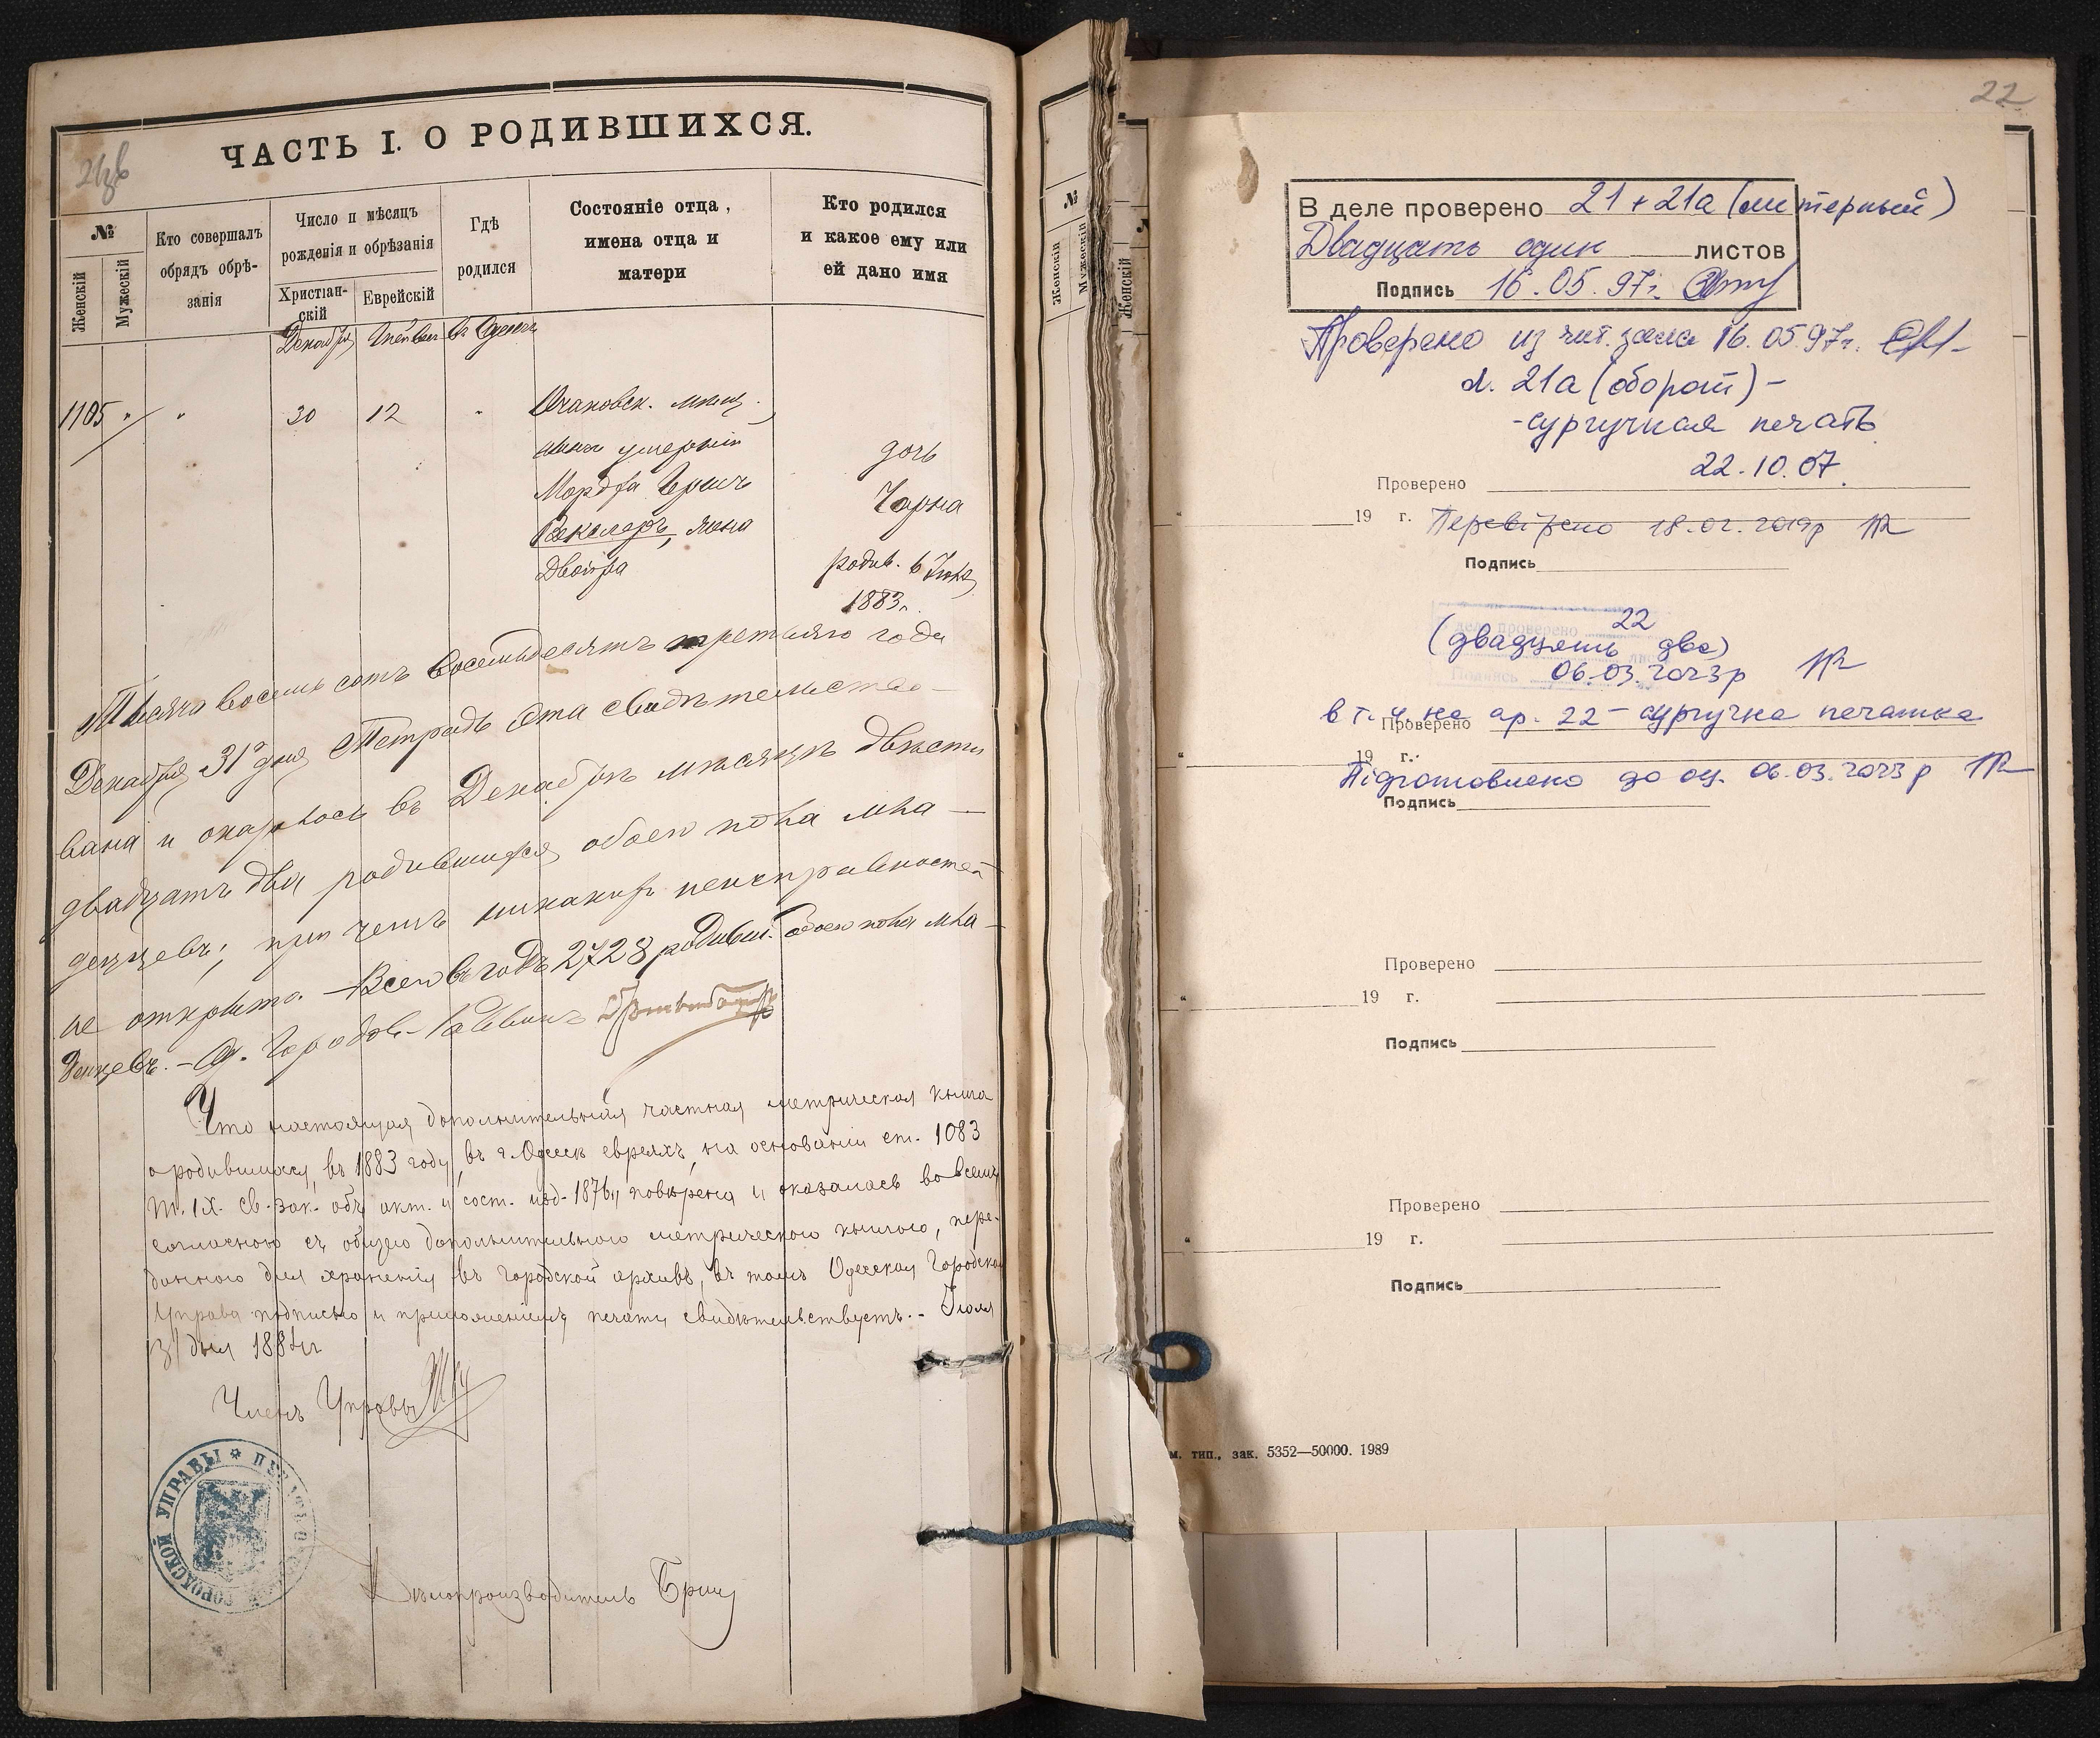 ЧАСТЬ I. О РОДИВШИХСЯ.
№
Женскій
Мужескій
Кто совершалъ
обрядъ обрѣ-
занія
Число и мѣсяцъ
рожденія и обрѣзанія
Христіан-
скій
Еврейскій
Гдѣ
родился
Состояніе отца,
имена отца и
матери
Кто родился
и какое ему или
ей дано имя
Декабря
въ Одессѣ
1105 " " 30 12 "
Очаковск. мѣщ.
умершій
Мордха
жена
Двойра
дочь
Чарна
родив. 6
1883 г.
Тысяча восемь сотъ восемьдесятъ третьяго года
Декабря 31го дня Тетрадь эта свидѣтельство-
вана и оказалось въ Декабрѣ мѣсяцѣ двѣсти
двадцать два родившихся обоего пола мла-
денцевъ; при чемъ никакихъ неисправностей
не открыто. – Всего въ годъ 2728 родивш. обоего пола мла-
денцевъ. –
Что настоящая дополнительная частная метрическая книга
о родившихся въ 1883 году въ г. Одессѣ евреяхъ, на основаніи ст. 1083
т. IX. св. зак. объ акт. и сост. изд. 1876 повѣрена и оказалась во всемъ
согласною съ общею дополнительною метрическою книгою, пере-
данною для храненія въ городской архивъ, въ томъ Одесская Городская
Управа подписью и приложеніемъ печати свидѣтельствуетъ. – Іюля
31 дня 1884 г.
Членъ Управы
ГОРОДСКОЙ УПРАВЫ
Дѣлопроизводитель
№
Женскій
Мужескій
Женскій
22
В деле проверено 21 + 21а (литерный)
Двадцать один листов
Подпись 16.05.97г.
Проверено из чит. зала 16.05.97г.
л. 21а (оборот) –
- сургучная печать
22.10.07.
Проверено
19 г. Перевірено 18.02.2019р
Подпись
22
(двадцять два)
06.03.2023р
в т.ч. на ар. 22 – сургучна печатка
Проверено
" 19 г.
Підготовлено до оц. 06.03.2023р
Подпись
Проверено
" 19 г.
Подпись
Проверено
" 19 г.
Подпись
м. тип., зак. 5352—50000. 1989